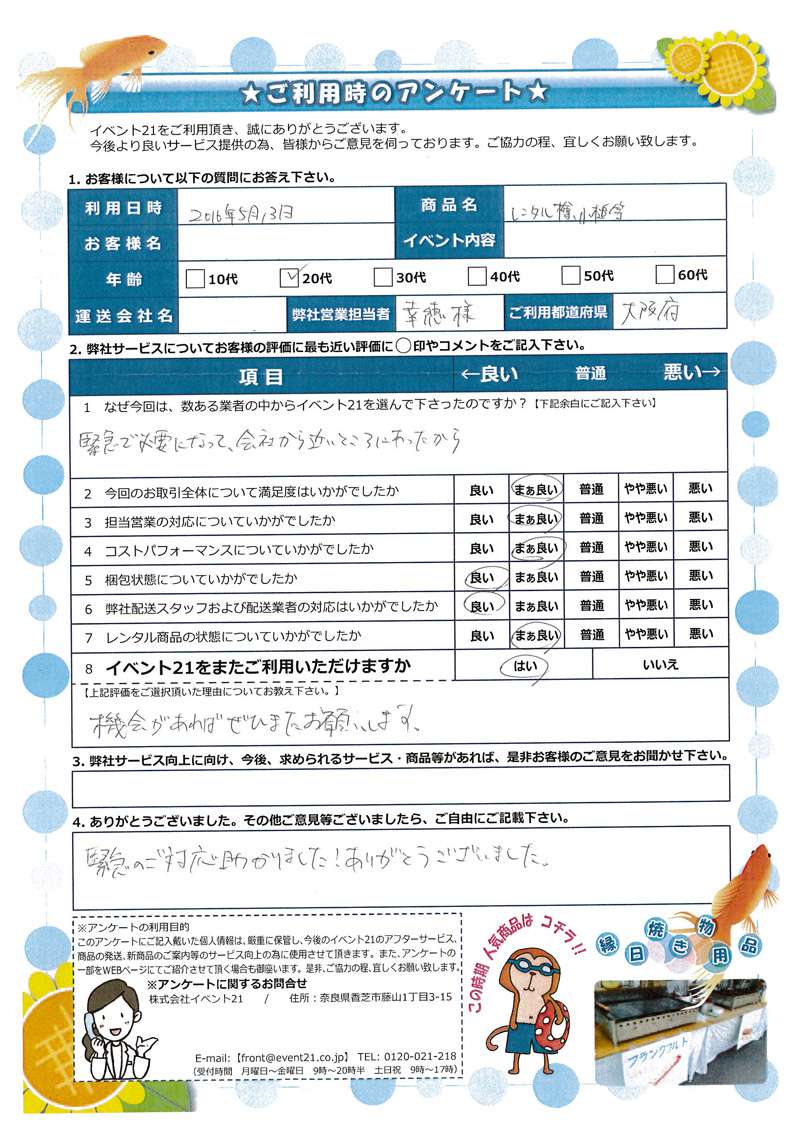 ★ご利用時のアンケート★
イベント21をご利用頂き、誠にありがとうございます。
今後より良いサービス提供の為、皆様からご意見を伺っております。ご協力の程、宜しくお願い致します。
1. お客様について以下の質問にお答え下さい。
利用日時 2016年5月13日 商品名 レンタル樽、小槌等
お客様名 イベント内容
年齢 10代 20代 30代 40代 50代 60代
運送会社名 弊社営業担当者 幸穂様 ご利用都道府県 大阪府
2. 弊社サービスについてお客様の評価に最も近い評価に○印やコメントをご記入下さい。
項目 ←良い 普通 悪い→
1 なぜ今回は、数ある業者の中からイベント21を選んで下さったのですか？【下記余白にご記入下さい】
緊急で必要になって、会社から近いところにあったから
2 今回のお取引全体について満足度はいかがでしたか 良い まぁ良い 普通 やや悪い 悪い
3 担当営業の対応についていかがでしたか 良い まぁ良い 普通 やや悪い 悪い
4 コストパフォーマンスについていかがでしたか 良い まぁ良い 普通 やや悪い 悪い
5 梱包状態についていかがでしたか 良い まぁ良い 普通 やや悪い 悪い
6 弊社配送スタッフおよび配送業者の対応はいかがでしたか 良い まぁ良い 普通 やや悪い 悪い
7 レンタル商品の状態についていかがでしたか 良い まぁ良い 普通 やや悪い 悪い
8 イベント21をまたご利用いただけますか はい いいえ
【上記評価をご選択頂いた理由についてお教え下さい。】
機会があればぜひまたお願いします。
3. 弊社サービス向上に向け、今後、求められるサービス・商品等があれば、是非お客様のご意見をお聞かせ下さい。
4. ありがとうございました。その他ご意見等ございましたら、ご自由にご記載下さい。
緊急のご対応助かりました！ありがとうございました。
※アンケートの利用目的
このアンケートにご記入戴いた個人情報は、厳重に保管し、今後のイベント21のアフターサービス、
商品の発送、新商品のご案内等のサービス向上の為に使用させて頂きます。また、アンケートの
一部をWEBページにてご紹介させて頂く場合も御座います。是非、ご協力の程、宜しくお願い致します。
※アンケートに関するお問合せ
株式会社イベント21 / 住所：奈良県香芝市藤山1丁目3-15
E-mail:【front@event21.co.jp】 TEL: 0120-021-218
（受付時間 月曜日～金曜日 9時～20時半 土日祝 9時～17時）
この時期 人気商品は コチラ!!
縁日焼き物用品
フランクフルト